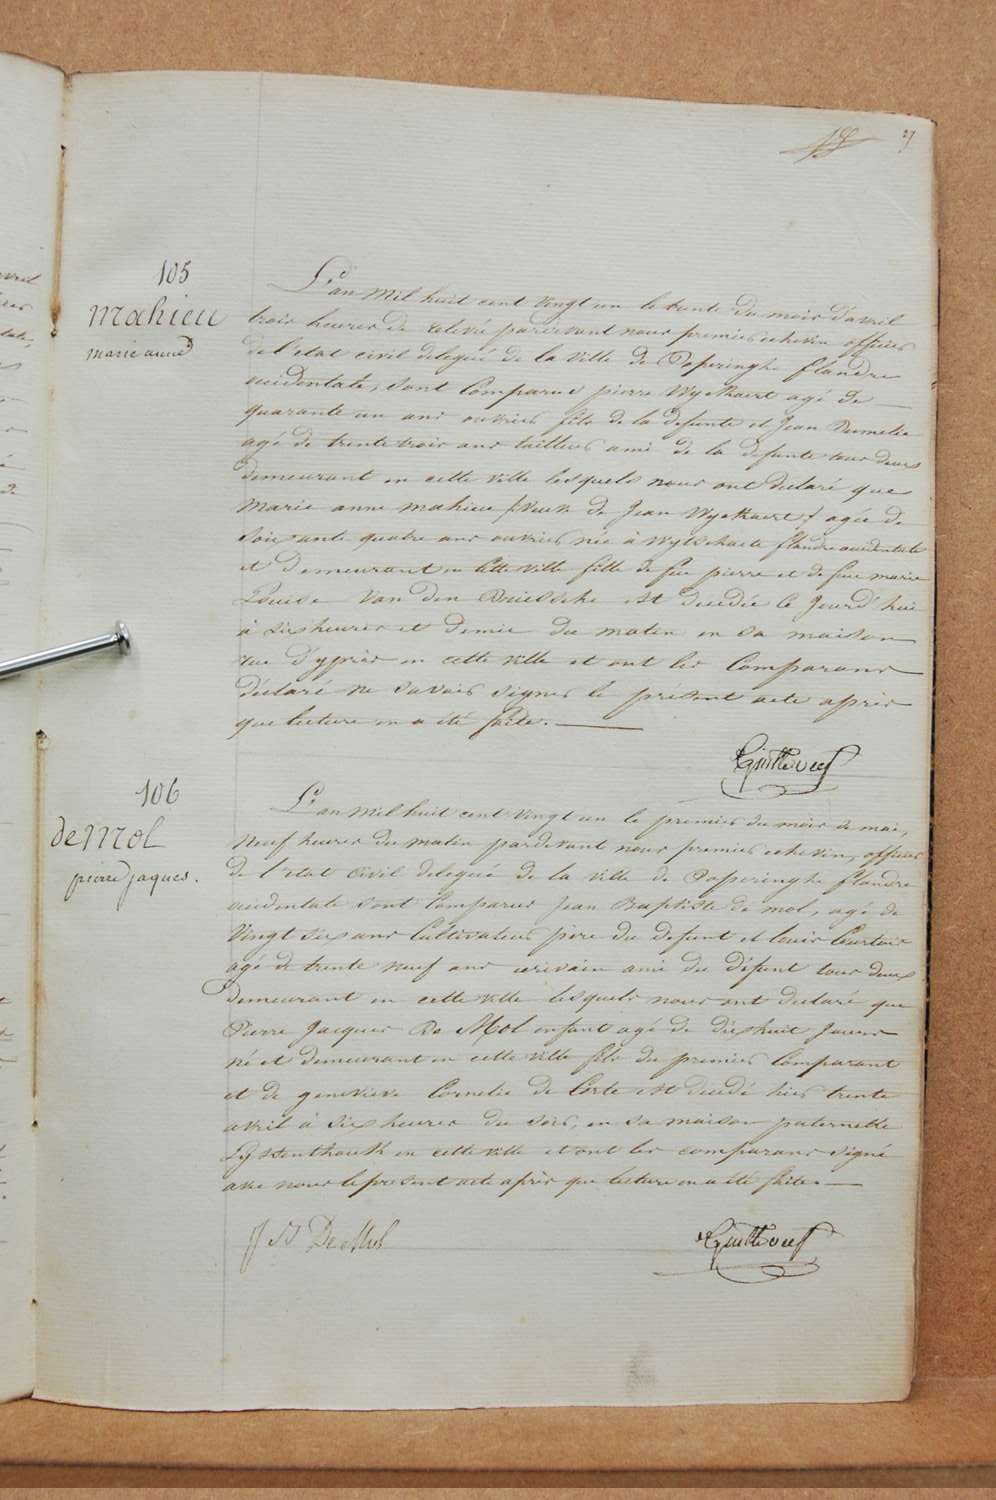 27
105
Mahieu
marie anne
L'an mil huit cent vingt un le trente du mois d'avril
trois heures de relevée pardevant nous premier echevin officier
de l'etat civil delegué de la ville de Poperinghe flandre
occidentale, sont comparus pierre Wyckaert agé de
quarante un ans ouvrier fils de la defunte et Jean Dumelie
agé de trente trois ans tailleur ami de la defunte tous deux
demeurant en cette ville lesquels nous ont declaré que
Marie anne Mahieu (veuve de Jean Wyckaert) agée de
Soixante quatre ans ouvriere née à Wytschaete flandre occidentale
et Demeurant en cette ville fille de feu pierre et de feue marie
Louise Van den Driessche est décédée ce Jourd'hui
à Six heures et demie du matin en sa maison
rue d'ypres en cette ville et ont les Comparans
déclaré ne savoir signer le présent acte après
que lecture en a été faite.
106
de Mol
pierre jaques.
L'an mil huit cent vingt un le premier du mois de mai,
neuf heures du matin pardevant nous premier echevin, officier
de l'etat Civil delegué de la ville de Poperinghe flandre
occidentale sont Comparus Jean Baptiste de mol, agé de
Vingt Six ans Cultivateur père du defunt et louis Courtois
agé de trente neuf ans ecrivain ami du défunt tous deux
Demeurant en cette ville lesquels nous ont declaré que
Pierre Jacques De Mol enfant agé de dixhuit Jours
né et demeurant en cette ville fils du premier Comparant
et de genevieve Cornelie de Corte est décédé hier trente
avril à Six heures du soir, en sa maison paternelle
en cette ville et ont les comparans signé
avec nous le present acte après que lecture en a été faite.
J B De Mol